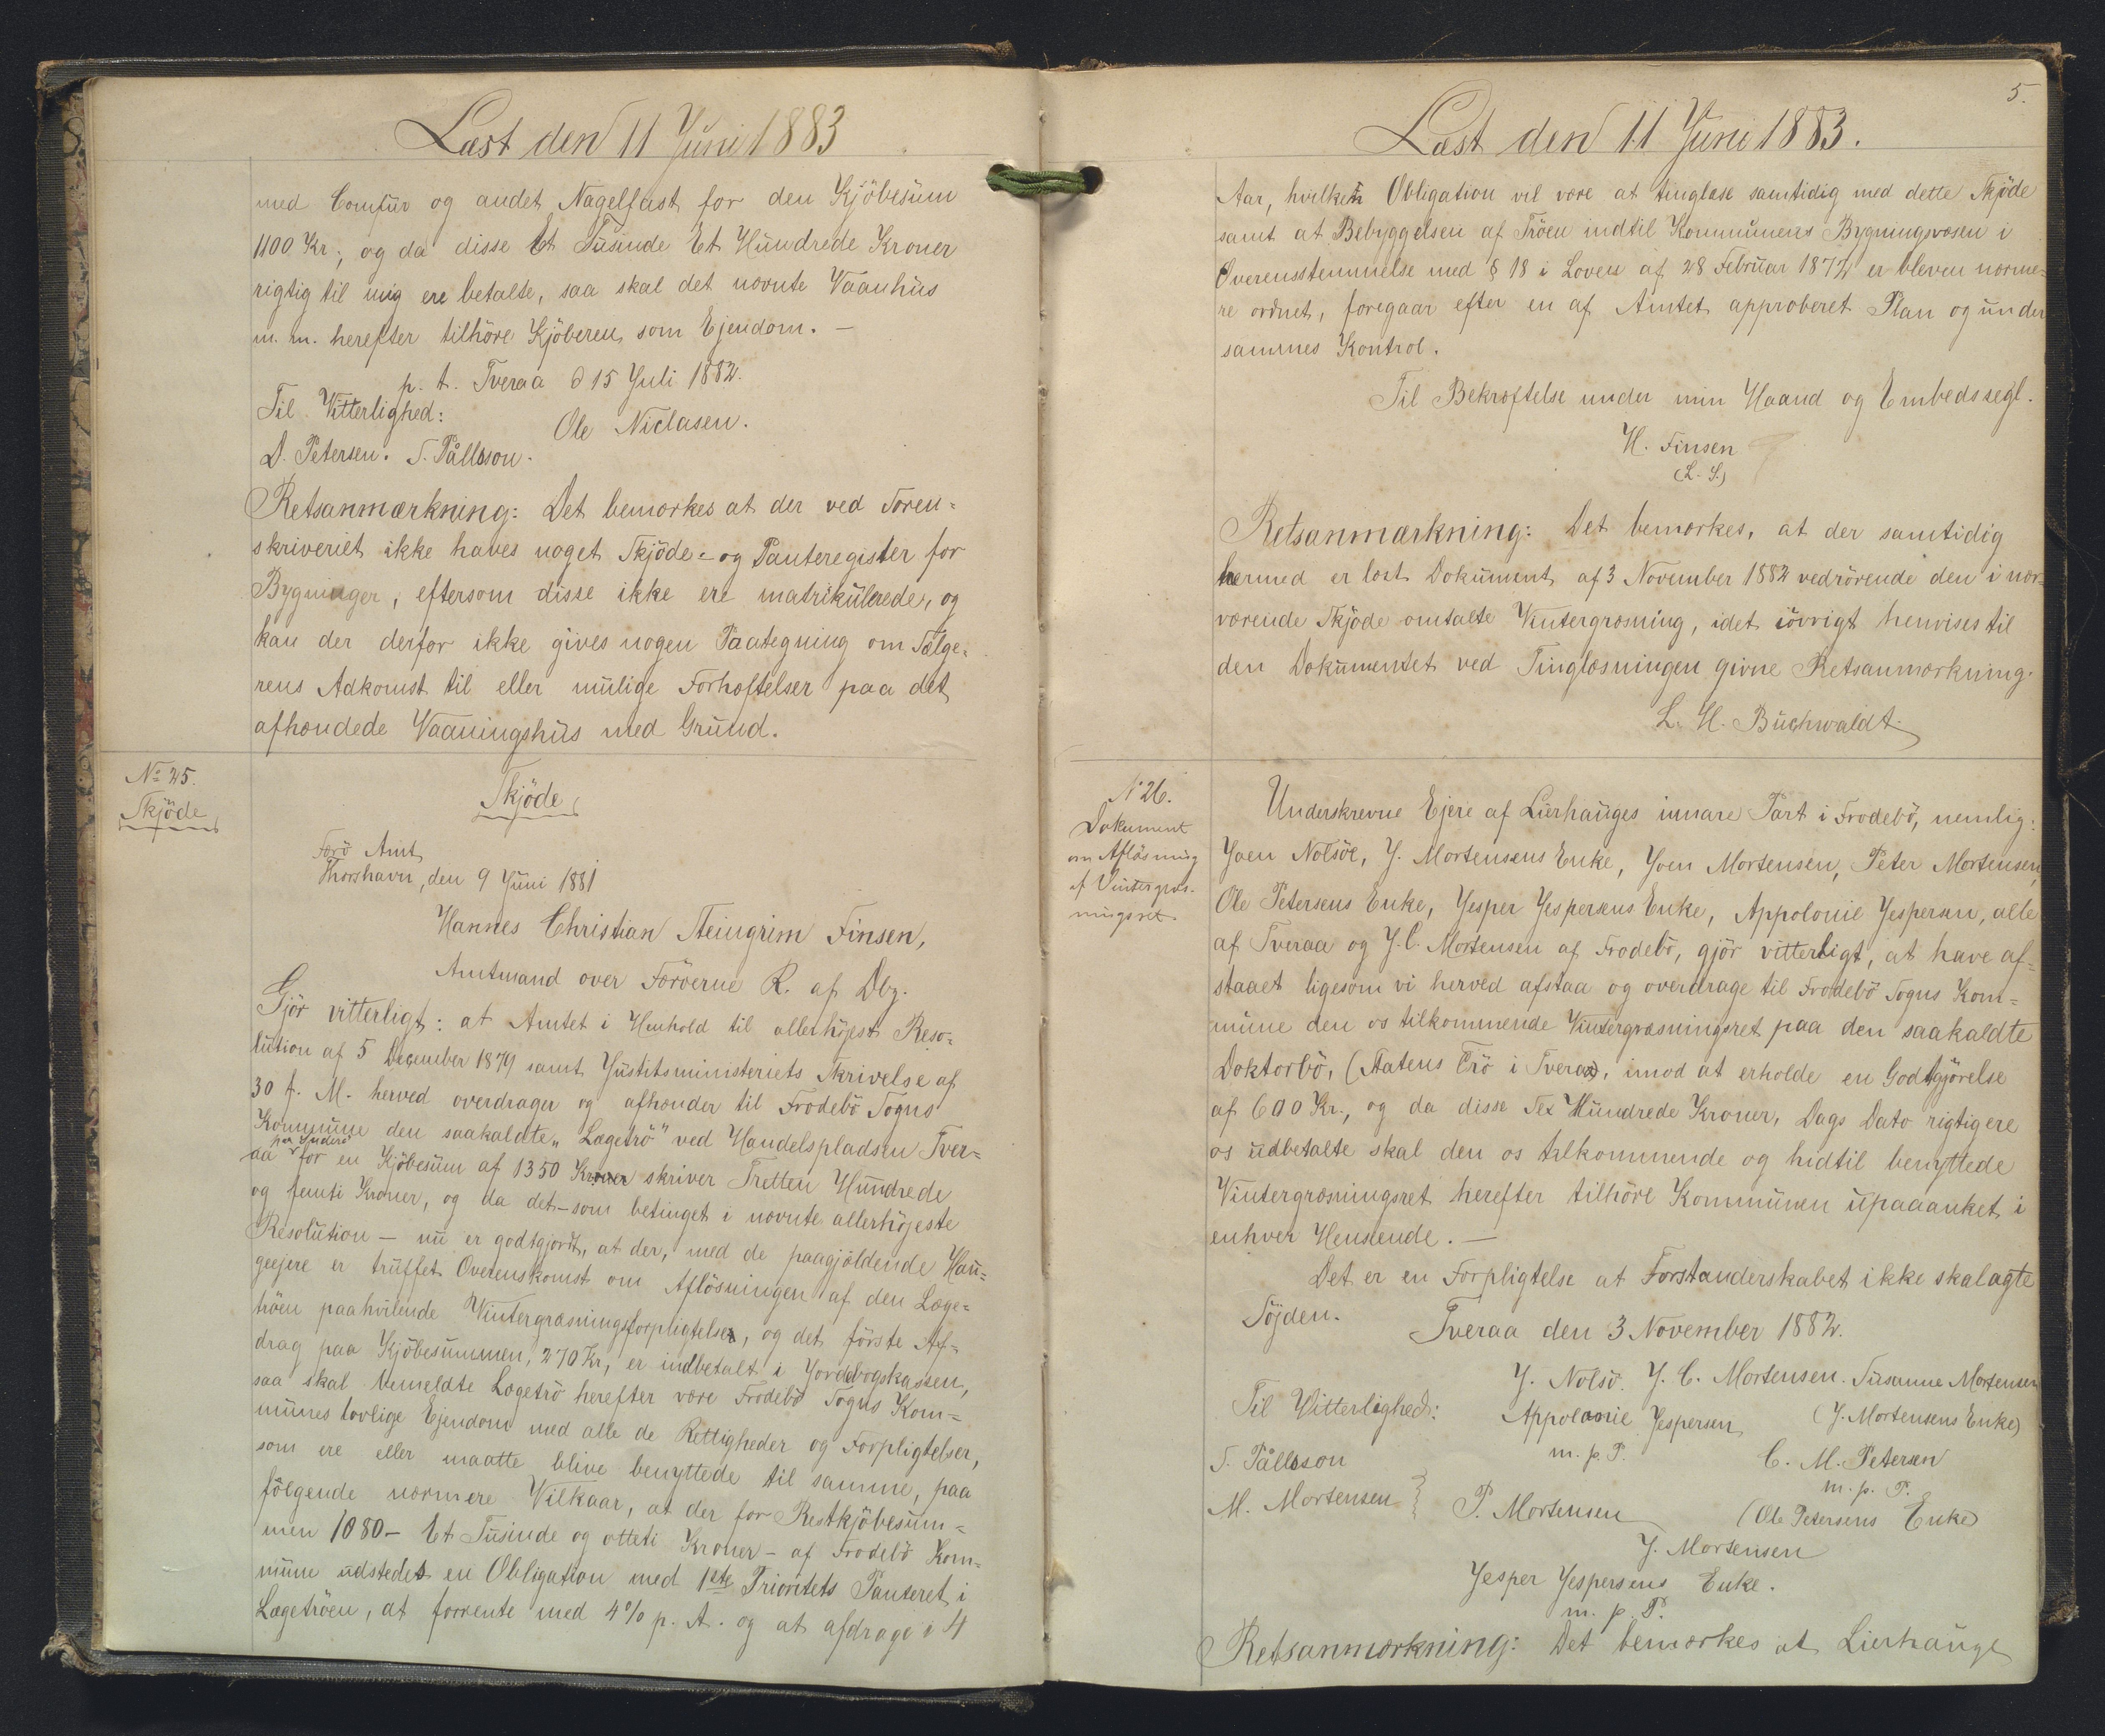 Læst den 11 Juni 1883
med Comfur og andet Nagelfast for den Kjöbesum
1100 Kr.; og da disse Et Tusinde Et Hundrede Kroner
rigtig til mig ere betalte, saa skal det nævnte Vaanhus
m. m. herefter tilhöre Kjöberen som Ejendom. —
p. t. Tveraa d 15 Juli 1882.
Til Vitterlighed:
Ole Niclasen.
D. Petersen. S. Pállsson.
Retsanmærkning: Det bemærkes at der ved Soren-
skriveriet ikke haves noget Skjöde- og Panteregister for
Bygninger, eftersom disse ikke ere matrikulerede, og
kan der derfor ikke gives nogen Paategning om Sælge-
rens Adkomst til eller mulige Forhæftelser paa det
afhændede Vaaningshus med Grund.
No 25.
Skjöde
Skjöde
Færö Amt
Thorshavn, den 9 Juni 1881
Hannes Christian Steingrim Finsen,
Amtmand over Færöerne R. af Dbg.
Gjör vitterligt: at Amtet i Henhold til allerhöjest Reso-
lution af 5 December 1879 samt Justitsministeriets Skrivelse af
30 f. M. herved overdrager og afhænder til Frodebö Sogns
Kommune den saakaldte "Lægetrö" ved Handelspladsen Tver-
aa paa Suderö for en Kjöbesum af 1350 Kroner skriver Tretten Hundrede
og femti Kroner, og da det – som betinget i nævnte allerhöjeste
Resolution — nu er godtgjordt, at der, med de paagjældende Hau-
geejere er truffet Overenskomst om Aflösningen af den Læge-
tröen paahvilende Vintergræsningsforpligtelse, og det förste Af-
drag paa Kjöbesummen, 270 Kr, er indbetalt i Jordebogskassen,
saa skal bemeldte Lægetrö herefter være Frodebö Sogns Kom-
munes lovlige Ejendom med alle de Rettigheder og Forpligtelser,
som ere eller maatte blive benyttede til samme, paa
fölgende nærmere Vilkaar, at der for Restkjöbesum-
men 1080 – Et Tusinde og otteti Kroner – af Frodebö Kom-
mune udstedes en Obligation med 1ste Prioritets Panteret i
Lægetröen, at forrente med 4% p. A. og at afdrage i 4
5.
Læst den 11 Juni 1883.
Aar, hvilken Obligation vil være at tinglæse samtidig med dette Skjöde
samt at Bebyggelsen af Tröen indtil Kommunens Bygningsvæsen i
Overensstemmelse med § 18 i Loven af 28 Februar 1872 er bleven nærme-
re ordnet, foregaar efter en af Amtet approberet Plan og under
sammes Kontrol.
Til Bekræftelse under min Haand og Embedssegl.
H. Finsen
(L. S.)
Retsanmærkning: Det bemærkes, at der samtidig
hermed er læst Dokument af 3 November 1882 vedrörende den i nær-
værende Skjöde omtalte Vintergræsning, idet iövrigt henvises til
den Dokumentet ved Tinglæsningen givne Retsanmærkning.
L. H. Buchwaldt
No 26.
Dokument
om Aflösning
af Vintergræs-
ningsret.
Underskrevne Ejere af Lierhauges innare Part i Frodebö, nemlig:
Joen Nolsöe, J. Mortensens Enke, Joen Mortensen, Peter Mortensen,
Ole Petersens Enke, Jesper Jespersens Enke, Appolonie Jespersen, alle
af Tveraa og J. C. Mortensen af Frodebö, gjör vitterligt, at have af-
staaet ligesom vi herved afstaa og overdrage til Frodebö Sogns Kom-
mune den os tilkommende Vintergræsningsret paa den saakaldte
Doktorbö, (Statens Trö i Tveraa), imod at erholde en Godtgjörelse
af 600 Kr., og da disse Sex Hundrede Kroner, Dags Dato rigtig ere
os udbetalte skal den os tilkommende og hidtil benyttede
Vintergræsningsret herefter tilhöre Kommunen upaaanket i
enhver Henseende. —
Det er en Forpligtelse at Forstanderskabet ikke skal agte
Töjden.
Tveraa den 3 November 1882.
J. Nolsö. J. C. Mortensen. Susanne Mortensen
Til Vitterlighed:
Appolonie Jespersen
(J. Mortensens Enke)
S. Pállsson
m. p. P.
C. M. Petersen
m. p. P.
M. Mortensen
P. Mortensen
(Ole Petersens Enke)
J. Mortensen
Jesper Jespersens Enke.
m. p. P.
Retsanmærkning: Det bemærkes at Lierhauge